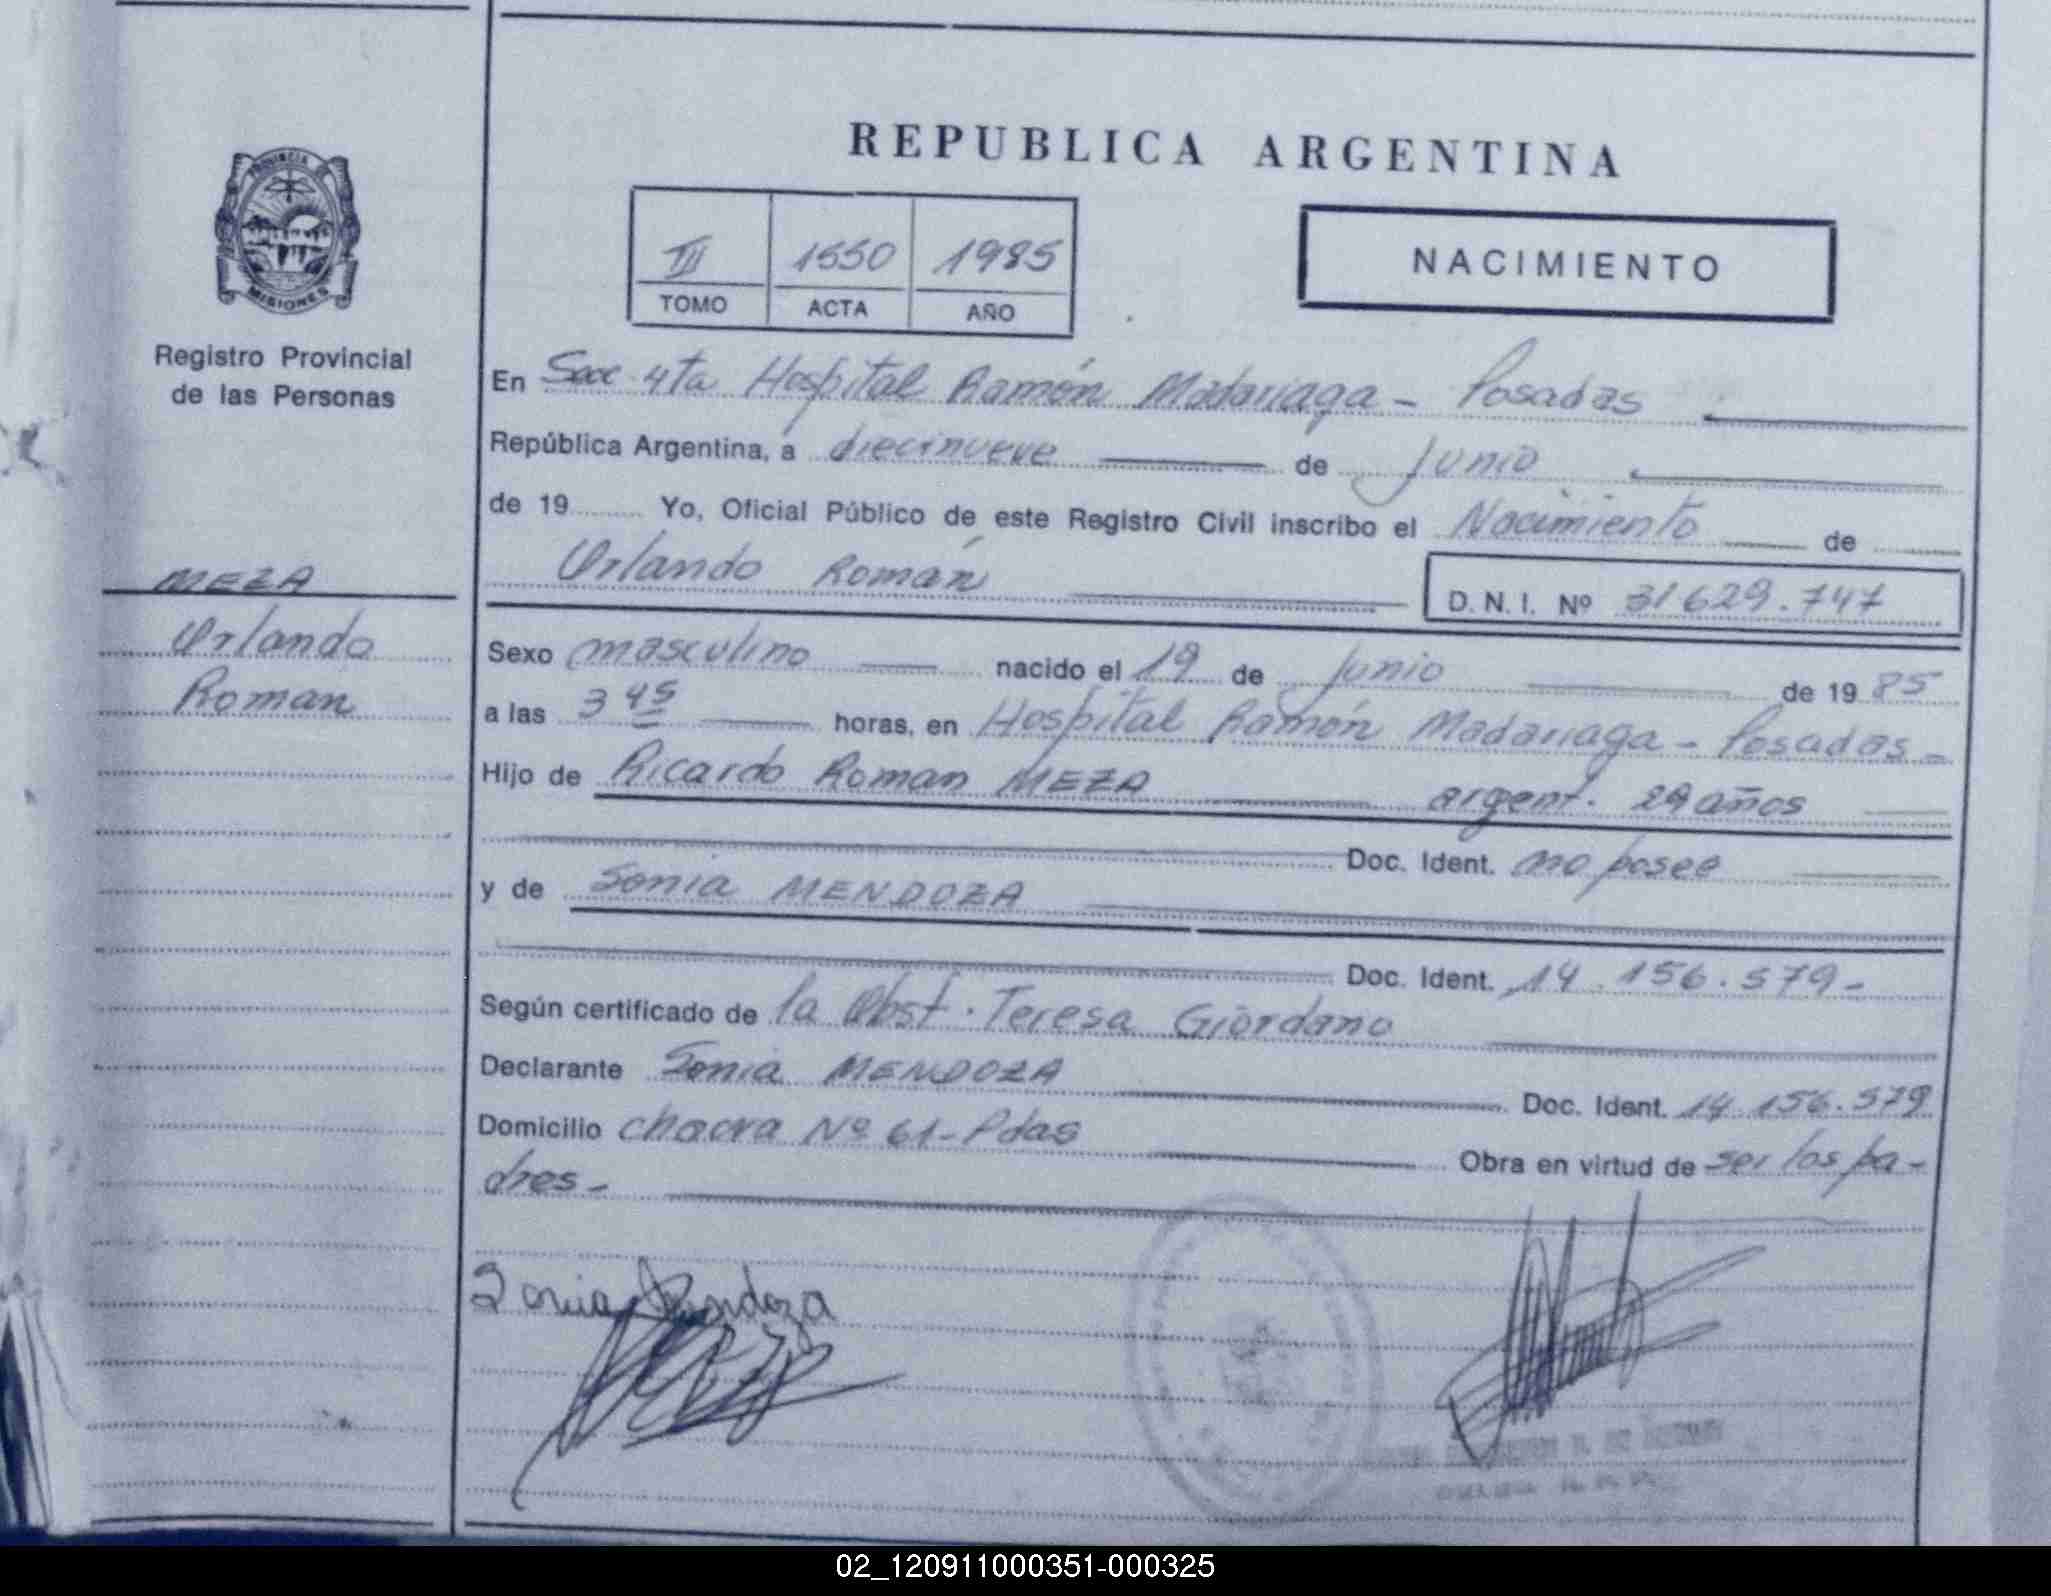 REPUBLICA ARGENTINA
PROVINCIA DE
MISIONES
Registro Provincial
de las Personas
III 1550 1985
TOMO ACTA AÑO
NACIMIENTO
En Secc 4ta Hospital Ramón Madariaga - Posadas
República Argentina, a diecinueve de Junio
de 19 Yo, Oficial Público de este Registro Civil inscribo el Nacimiento de
Orlando Román D. N. I. Nº 31629.747
MEZA
Orlando
Roman
Sexo masculino nacido el 19 de Junio de 19 85
a las 3 45 horas, en Hospital Ramón Madariaga - Posadas -
Hijo de Ricardo Roman MEZA argent. 29 años
Doc. Ident. no posee
y de Sonia MENDOZA
Doc. Ident. 14.156.579 -
Según certificado de la Obst. Teresa Giordano
Declarante Sonia MENDOZA Doc. Ident. 14 156.579
Domicilio chacra Nº 61 - Pdas Obra en virtud de ser los pa-
dres -
Sonia Mendoza
02_120911000351-000325